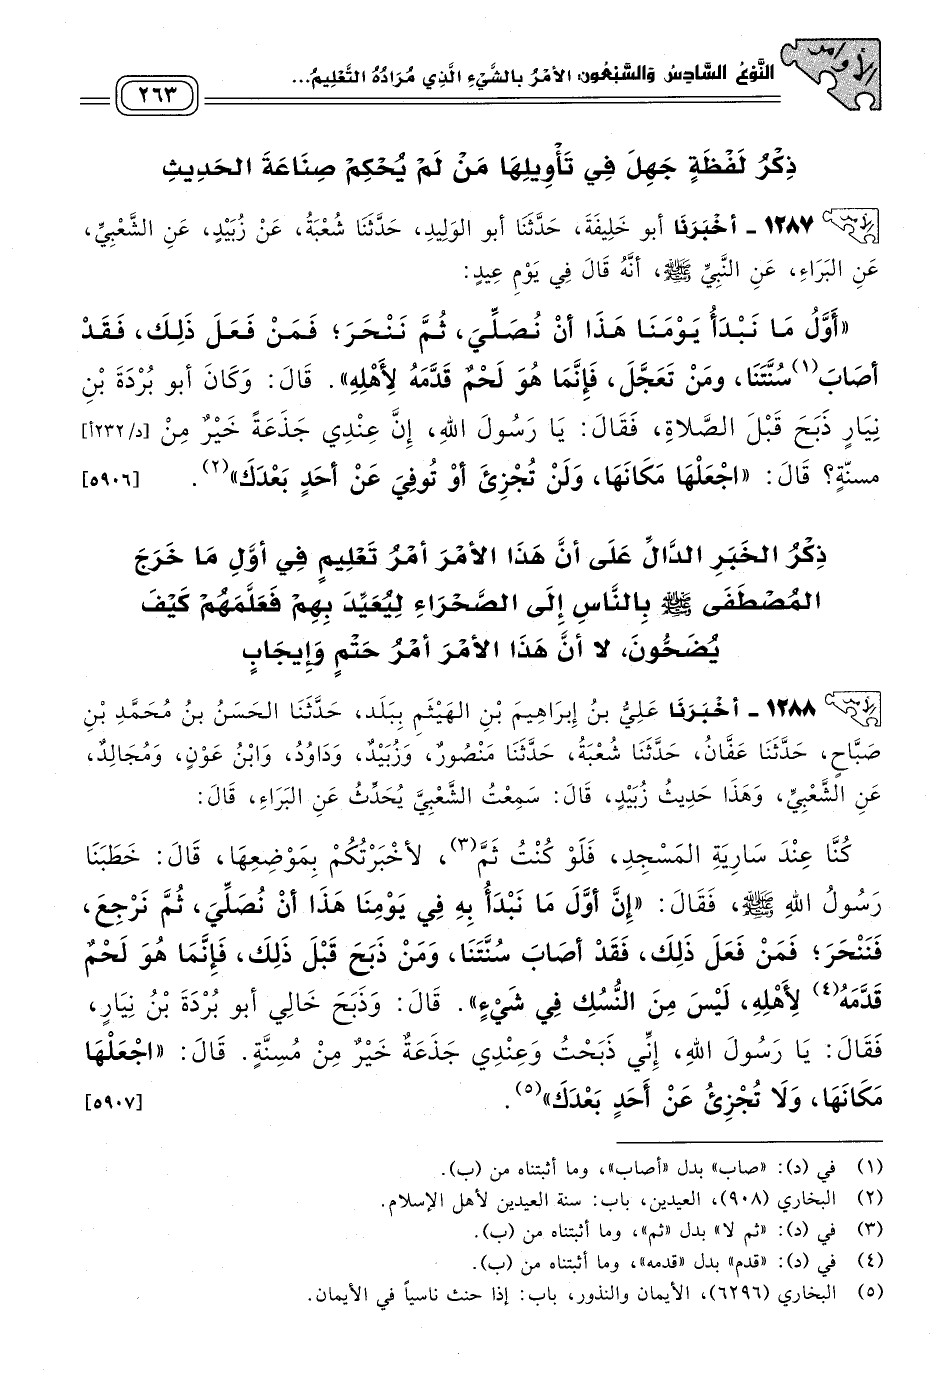 الأوامر
النَّوْعُ السَّادِسُ وَالسَّبْعُونَ: الأَمْرُ بِالشَّيْءِ الَّذِي مُرَادُهُ التَّعْلِيمُ...
٢٦٣
ذِكْرُ لَفْظَةٍ جَهِلَ فِي تَأْوِيلِهَا مَنْ لَمْ يُحْكِمْ صِنَاعَةَ الحَدِيثِ
١٢٨٧ - أَخْبَرَنَا أبو خَلِيفَةَ، حَدَّثَنَا أبو الوَلِيدِ، حَدَّثَنَا شُعْبَةُ، عَنْ زُبَيْدٍ، عَنِ الشَّعْبِيِّ،
عَنِ البَرَاءِ، عَنِ النَّبِيِّ ﷺ، أنَّهُ قَالَ فِي يَوْمِ عِيدٍ:
«أَوَّلُ مَا نَبْدَأُ يَوْمَنَا هَذَا أنْ نُصَلِّيَ، ثُمَّ نَنْحَرَ؛ فَمَنْ فَعَلَ ذَلِكَ، فَقَدْ
أصَابَ(١) سُنَّتَنَا، ومَنْ تَعَجَّلَ، فَإِنَّمَا هُوَ لَحْمٌ قَدَّمَهُ لِأَهْلِهِ». قَالَ: وَكَانَ أبو بُرْدَةَ بْنِ
نِيَارٍ ذَبَحَ قَبْلَ الصَّلاةِ، فَقَالَ: يَا رَسُولَ اللهِ، إِنَّ عِنْدِي جَذَعَةً خَيْرٌ مِنْ [د/٢٣٢أ]
مسنّةٍ؟ قَالَ: «اجْعَلْهَا مَكَانَهَا، وَلَنْ تُجْزِئَ أوْ تُوفِيَ عَنْ أحَدٍ بَعْدَكَ»(٢). [٥٩٠٦]
ذِكْرُ الخَبَرِ الدَّالِّ عَلَى أنَّ هَذَا الأمْرَ أمْرُ تَعْلِيمٍ فِي أوَّلِ مَا خَرَجَ
المُصْطَفَى ﷺ بِالنَّاسِ إِلَى الصَّحْرَاءِ لِيُعَيِّدَ بِهِمْ فَعَلَّمَهُمْ كَيْفَ
يُضَحُّونَ، لا أنَّ هَذَا الأمْرَ أمْرُ حَتْمٍ وَإِيجَابٍ
١٢٨٨ - أَخْبَرَنَا عَلِيُّ بنُ إبرَاهِيمَ بْنِ الهَيْثَمِ بِبَلَد، حَدَّثَنَا الحَسَنُ بنُ مُحَمَّدِ بْنِ
صَبَّاحٍ، حَدَّثَنَا عَفَّانُ، حَدَّثَنَا شُعْبَةُ، حَدَّثَنَا مَنْصُورٌ، وَزُبَيْدٌ، وَدَاوُدُ، وَابْنُ عَوْنٍ، وَمُجَالِدٌ،
عَنِ الشَّعْبِيِّ، وَهَذَا حَدِيثُ زُبَيْدٍ، قَالَ: سَمِعْتُ الشَّعْبِيَّ يُحَدِّثُ عَنِ البَرَاءِ، قَالَ:
كُنَّا عِنْدَ سَارِيَةِ المَسْجِدِ، فَلَوْ كُنْتُ ثَمَّ(٣)، لأخْبَرْتُكُمْ بِمَوْضِعِهَا، قَالَ: خَطَبَنَا
رَسُولُ اللهِ ﷺ، فَقَالَ: «إِنَّ أوَّلَ مَا نَبْدَأُ بِهِ فِي يَوْمِنَا هَذَا أنْ نُصَلِّيَ، ثُمَّ نَرْجِعَ،
فَنَنْحَرَ؛ فَمَنْ فَعَلَ ذَلِكَ، فَقَدْ أصَابَ سُنَّتَنَا، وَمَنْ ذَبَحَ قَبْلَ ذَلِكَ، فَإِنَّمَا هُوَ لَحْمٌ
قَدَّمَهُ(٤) لِأَهْلِهِ، لَيْسَ مِنَ النُّسُكِ فِي شَيْءٍ». قَالَ: وَذَبَحَ خَالِي أبو بُرْدَةَ بْنُ نِيَارٍ،
فَقَالَ: يَا رَسُولَ اللهِ، إِنِّي ذَبَحْتُ وَعِنْدِي جَذَعَةٌ خَيْرٌ مِنْ مُسِنَّةٍ. قَالَ: «اجْعَلْهَا
مَكَانَهَا، وَلَا تُجْزِئُ عَنْ أَحَدٍ بَعْدَكَ»(٥). [٥٩٠٧]
(١) في (د): «صاب» بدل «أصاب»، وما أثبتناه من (ب).
(٢) البخاري (٩٠٨)، العيدين، باب: سنة العيدين لأهل الإسلام.
(٣) في (د): «ثم لا» بدل «ثم»، وما أثبتناه من (ب).
(٤) في (د): «قدم» بدل «قدمه»، وما أثبتناه من (ب).
(٥) البخاري (٦٢٩٦)، الأيمان والنذور، باب: إذا حنث ناسياً في الأيمان.